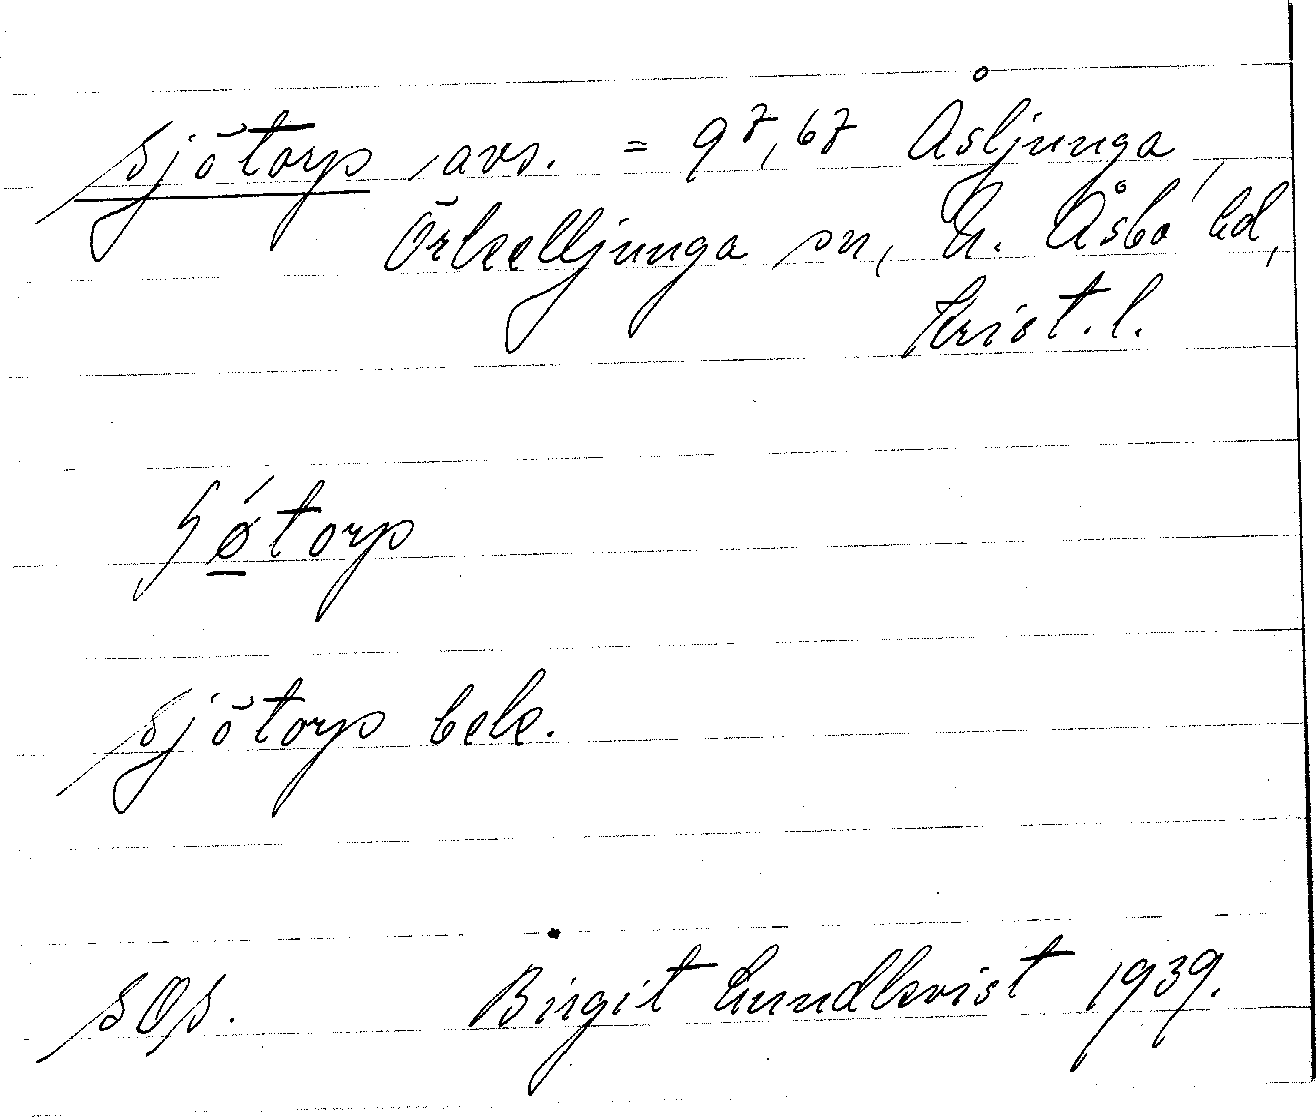 Sjötorp, avs. = 9⁷, 6⁷ Åsljunga,
Örkelljunga sn, N. Åsbo hd,
Krist. l.
ʃǿtorp
Sjötorp bek.
SOS. Birgit Lundkvist 1939.